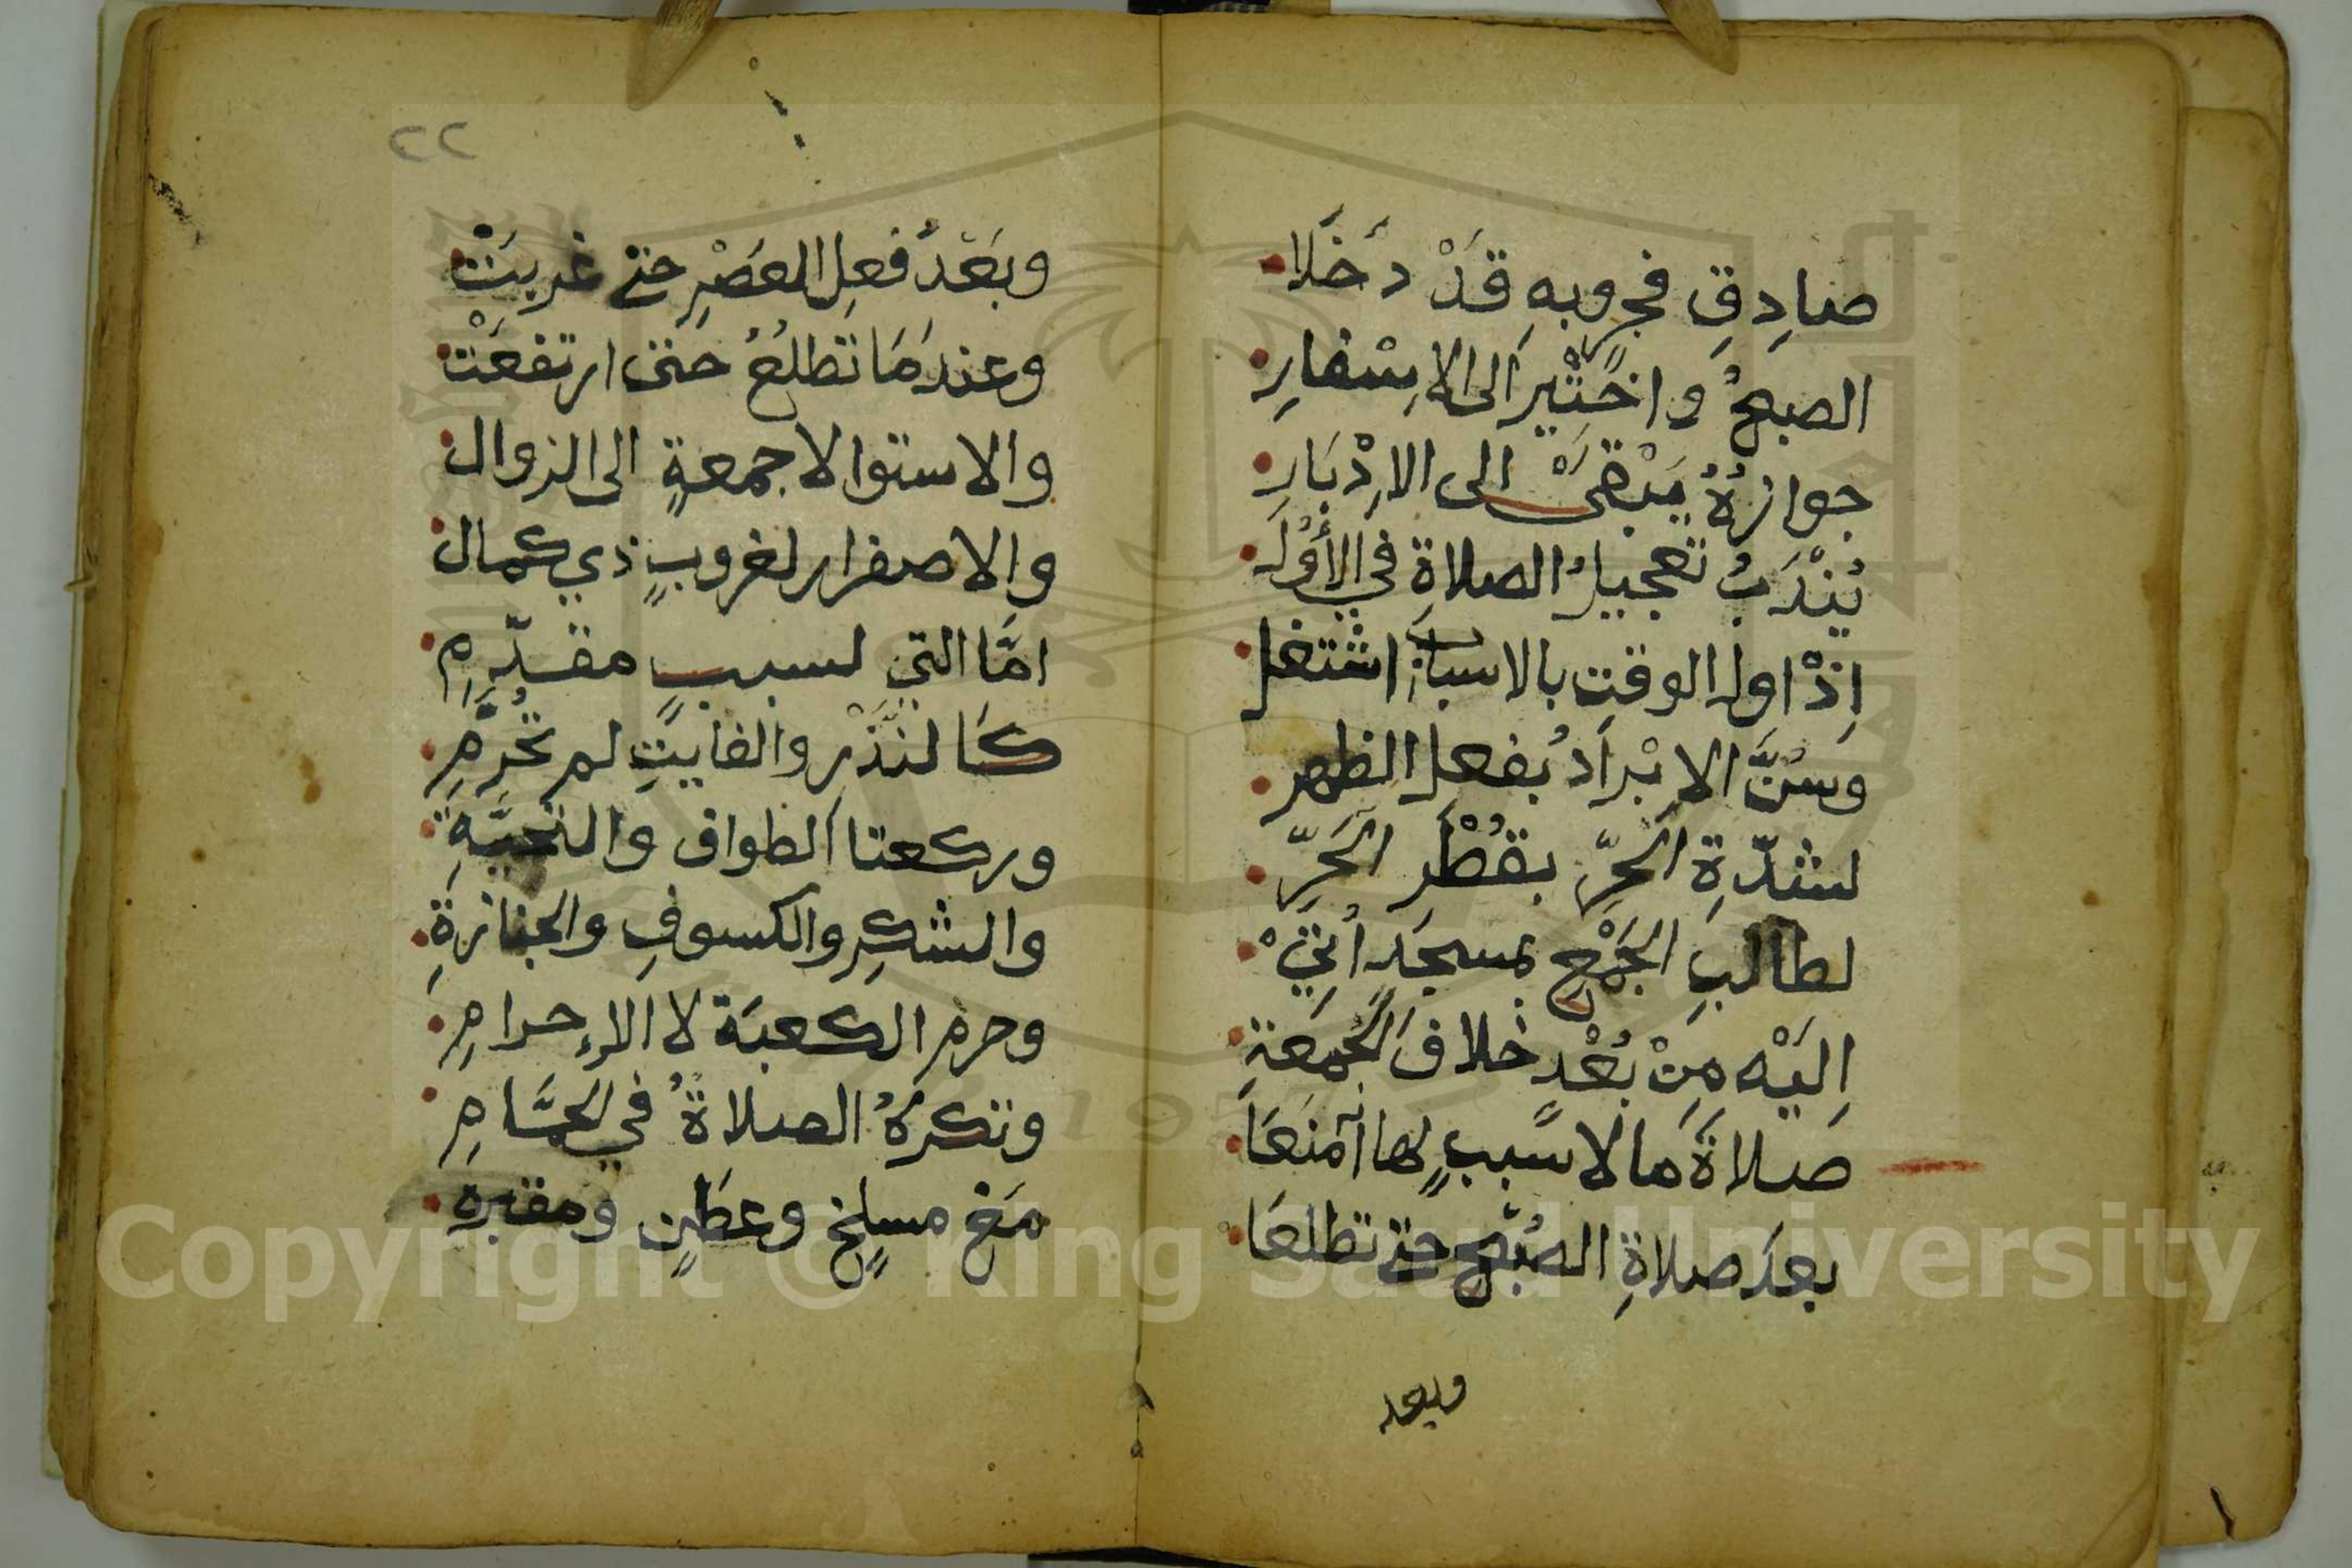 صادِقِ فجرٍ وبهِ قَدْ دَخَلَا
الصبحُ واختْيرَ الى الاِسْفارِ
جوازُهُ يَبْقَىْ الى الاِدْبَارِ
يُنْدَبُ تعجيلُ الصلاةِ في الأَوَّلِ
اِذْ اول الوقتِ بالاسباب اشتغل
وَسُنَّ الاِبْرادُ بفعل الظهر
لشدّةِ الحَرِّ بقُطْرِ الحَرِّ
لطالبِ الجَمْعِ بمسجدٍ اُتِيْ
اِلَيْه مِنْ بُعْدٍ خلافَ الجُمعَةِ
صَلاةَ ما لا سَببٍ لها آمنَعَا
بعدَ صلاةِ الصُبْحِ حتى تطلعَا
وبعد
٢٢
وبَعْدَ فعِلِ العَصْرِ حتى غربَتْ
وعندَمَا تطلعُ حتى ارتفعَتْ
والاستوا لا جمعةٍ الى الزوال
والاصفرار لغروبٍ ذي كمال
امَّا التي لسببٍ مقدّمِ
كَالنذْرِ والفايتِ لم تُحرَّمِ
وركعتا الطواف والتحيَّةِ
والشكرِ والكسوفِ والجنازةِ
وحرم الكعبَة لا الاِحرامِ
وتكرَهُ الصلاةُ في الحمَّامِ
مَعْ مسلخٍ وعطَنٍ ومقبرهِ
Copyright © King Saud University